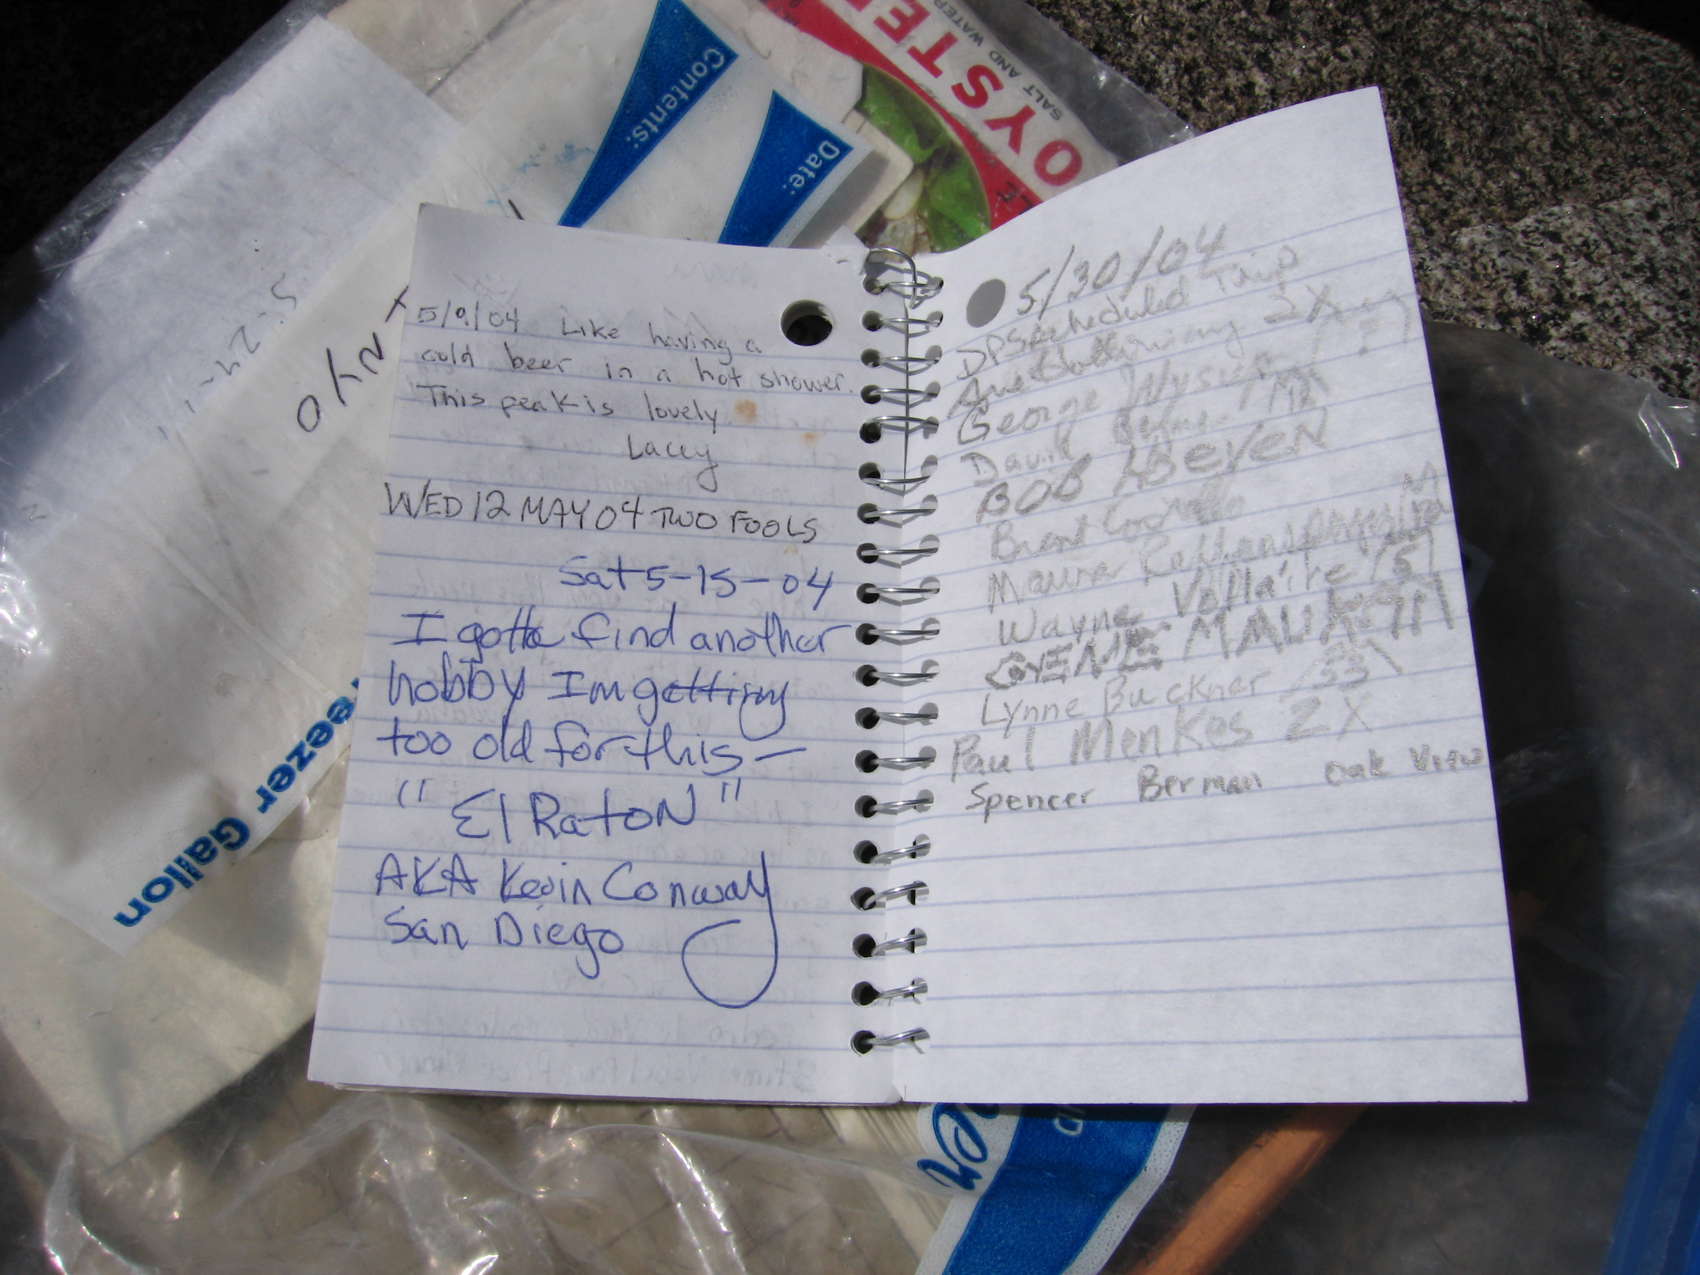 OYSTER
SALT AND WATER
Contents:
Date:
5/9/04 Like having a
cold beer in a hot shower.
This peak is lovely
Lacey
WED 12 MAY 04 TWO FOOLS
Sat 5-15-04
I gotta find another
hobby Im getting
too old for this —
"El RatoN"
AKA Kevin Conway
San Diego
5/30/04
DPS Scheduled Trip
2X
George
David
BOB
Brent
Maura
Wayne
GENE MAUK
Lynne Buckner
Paul Menkes 2X
Spencer Berman Oak View
Freezer Gallon